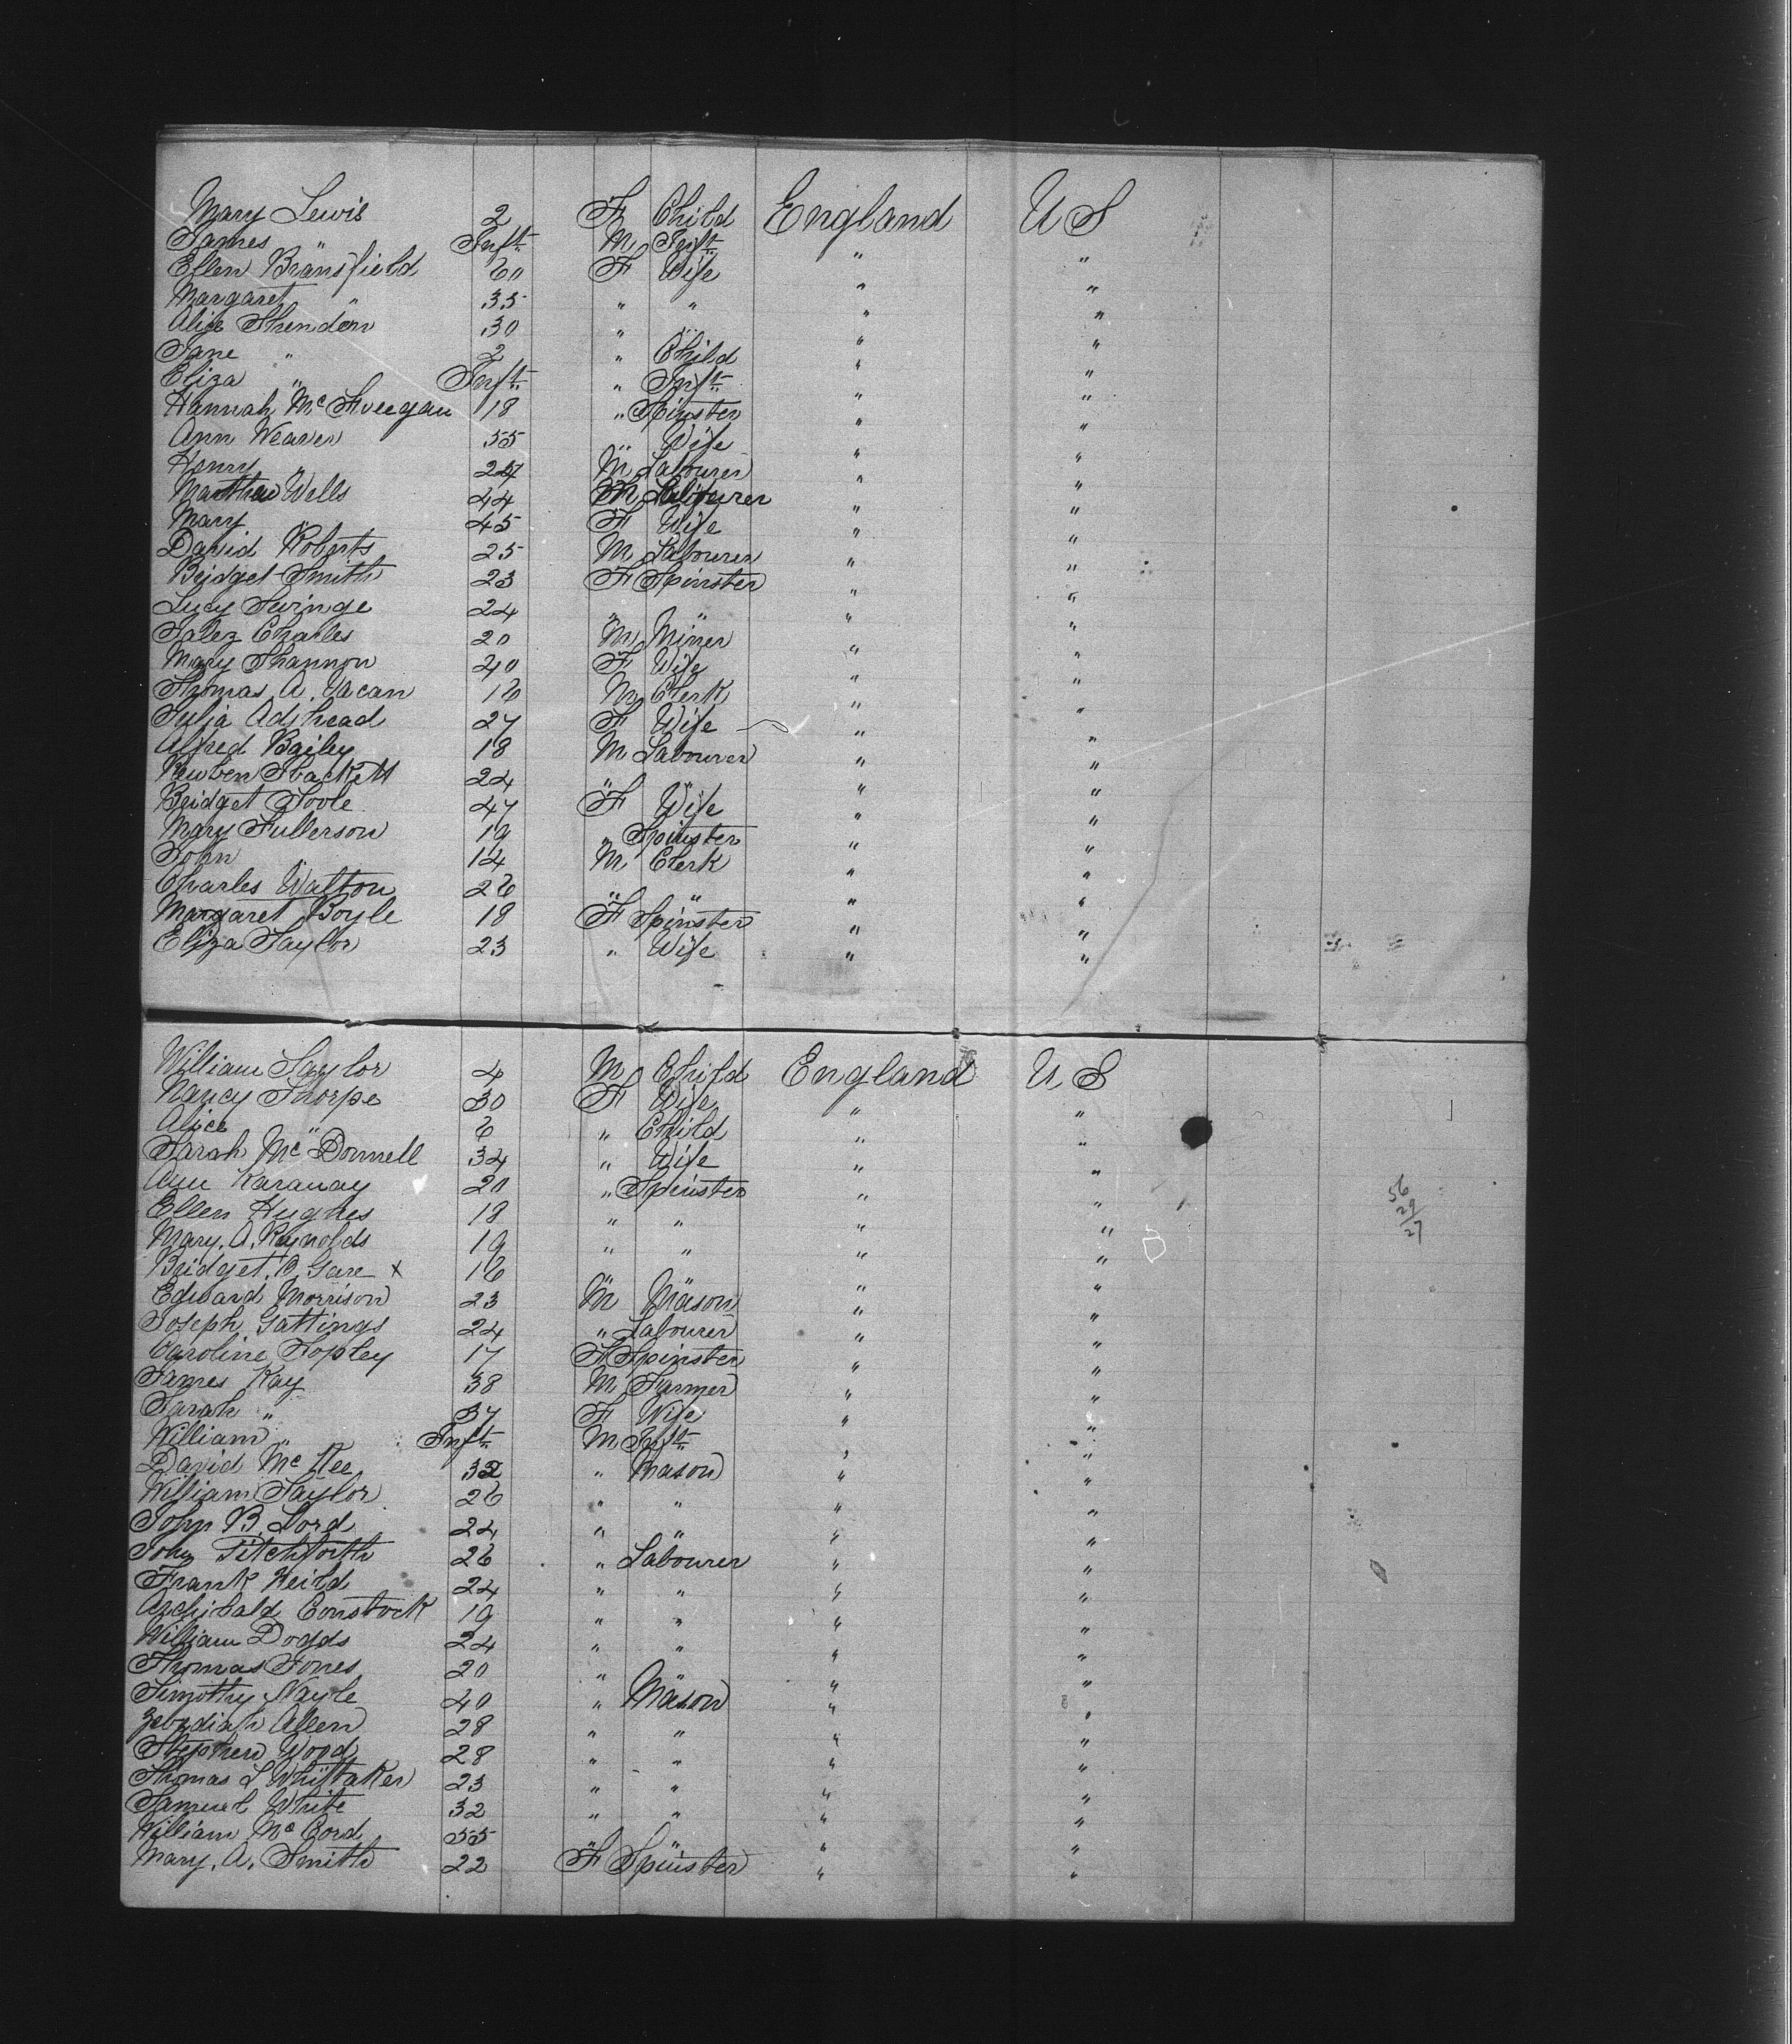 Mary Lewis 2 F Child England U S
James " Inft M Inft " "
Ellen Bransfield 60 F Wife " "
Margaret " 35 " " " "
Alice 30 " " " "
Jane " 2 " Child " "
Eliza " Inft " Inft " "
Hannah 18 " Spinster " "
Ann Weaver 55 " Wife " "
Henry " M Labourer " "
Matthew Wells 44 M Labourer " "
Mary " 45 F Wife " "
David Roberts 25 M Labourer " "
Bridget Smith 23 F Spinster " "
Lucy Swinge 24 " " " "
Jabez Charles 20 M Miner " "
Mary Shannon 40 F Wife " "
Thomas A. 16 M Clerk " "
Julia Adshead 27 F Wife " "
Alfred Bailey 18 M Labourer " "
Reuben 22 " " " "
Bridget Toole 47 F Wife " "
Mary Fullerson 19 " Spinster " "
John " 14 M Clerk " "
Charles Walton 26 " " " "
Margaret Boyle 18 F Spinster " "
Eliza Taylor 23 " Wife " "
William Taylor 4 M Child England U S
Nancy Thorpe 30 F Wife " "
Alice " 6 " Child " "
Sarah McDonnell 34 " Wife " "
Ann 20 " Spinster " "
Ellen Hughes 18 " " " "
Mary. A. Reynolds 19 " " " "
Bridget. O Gare x 16 " " " "
Edward Morrison 23 M Mason " "
Joseph Gattings 24 " Labourer " "
Caroline Topley 17 F Spinster " "
James Kay 38 M Farmer " "
Sarah " 37 F Wife " "
William " Inft M Inft " "
David McKee 32 " Mason " "
William Taylor 26 " " " "
John B. Lord 24 " " " "
John Titchforth 26 " Labourer " "
Frank Heild 24 " " " "
Archibald Constock 19 " " " "
William Dodds 24 " " " "
Thomas Jones 20 " " " "
Timothy Nayle 40 " Mason " "
Zebediah Allen 28 " " " "
Stephen Wood 28 " " " "
Thomas L Whittaker 23 " " " "
Samuel White 32 " " " "
William McCord 55 " " " "
Mary. A. Smith 22 F Spinster " "
56
29
27